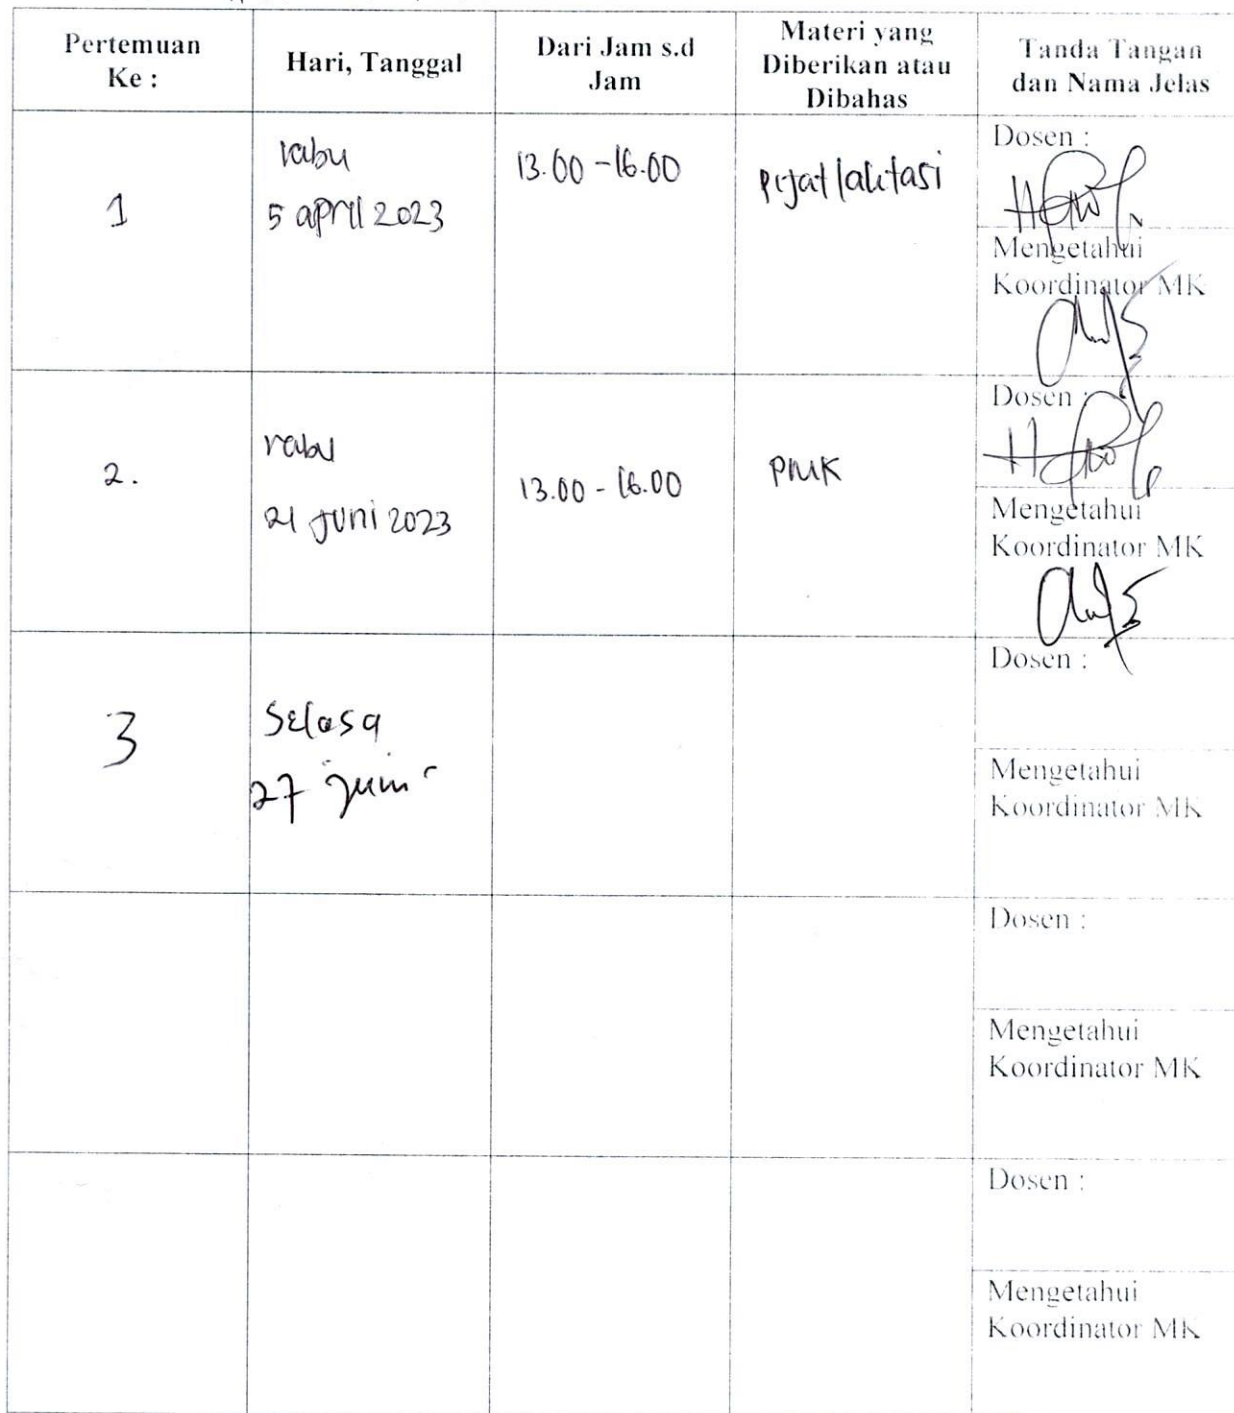 Pertemuan
Ke :
Hari, Tanggal
Dari Jam s.d
Jam
Materi yang
Diberikan atau
Dibahas
Tanda Tangan
dan Nama Jelas
1
rabu
5 april 2023
13.00 - 16.00
pijat laktasi
Dosen :
Mengetahui
Koordinator MK
2.
rabu
21 juni 2023
13.00 - 16.00
PMK
Dosen :
Mengetahui
Koordinator MK
3
Selasa
27 juni
Dosen :
Mengetahui
Koordinator MK
Dosen :
Mengetahui
Koordinator MK
Dosen :
Mengetahui
Koordinator MK